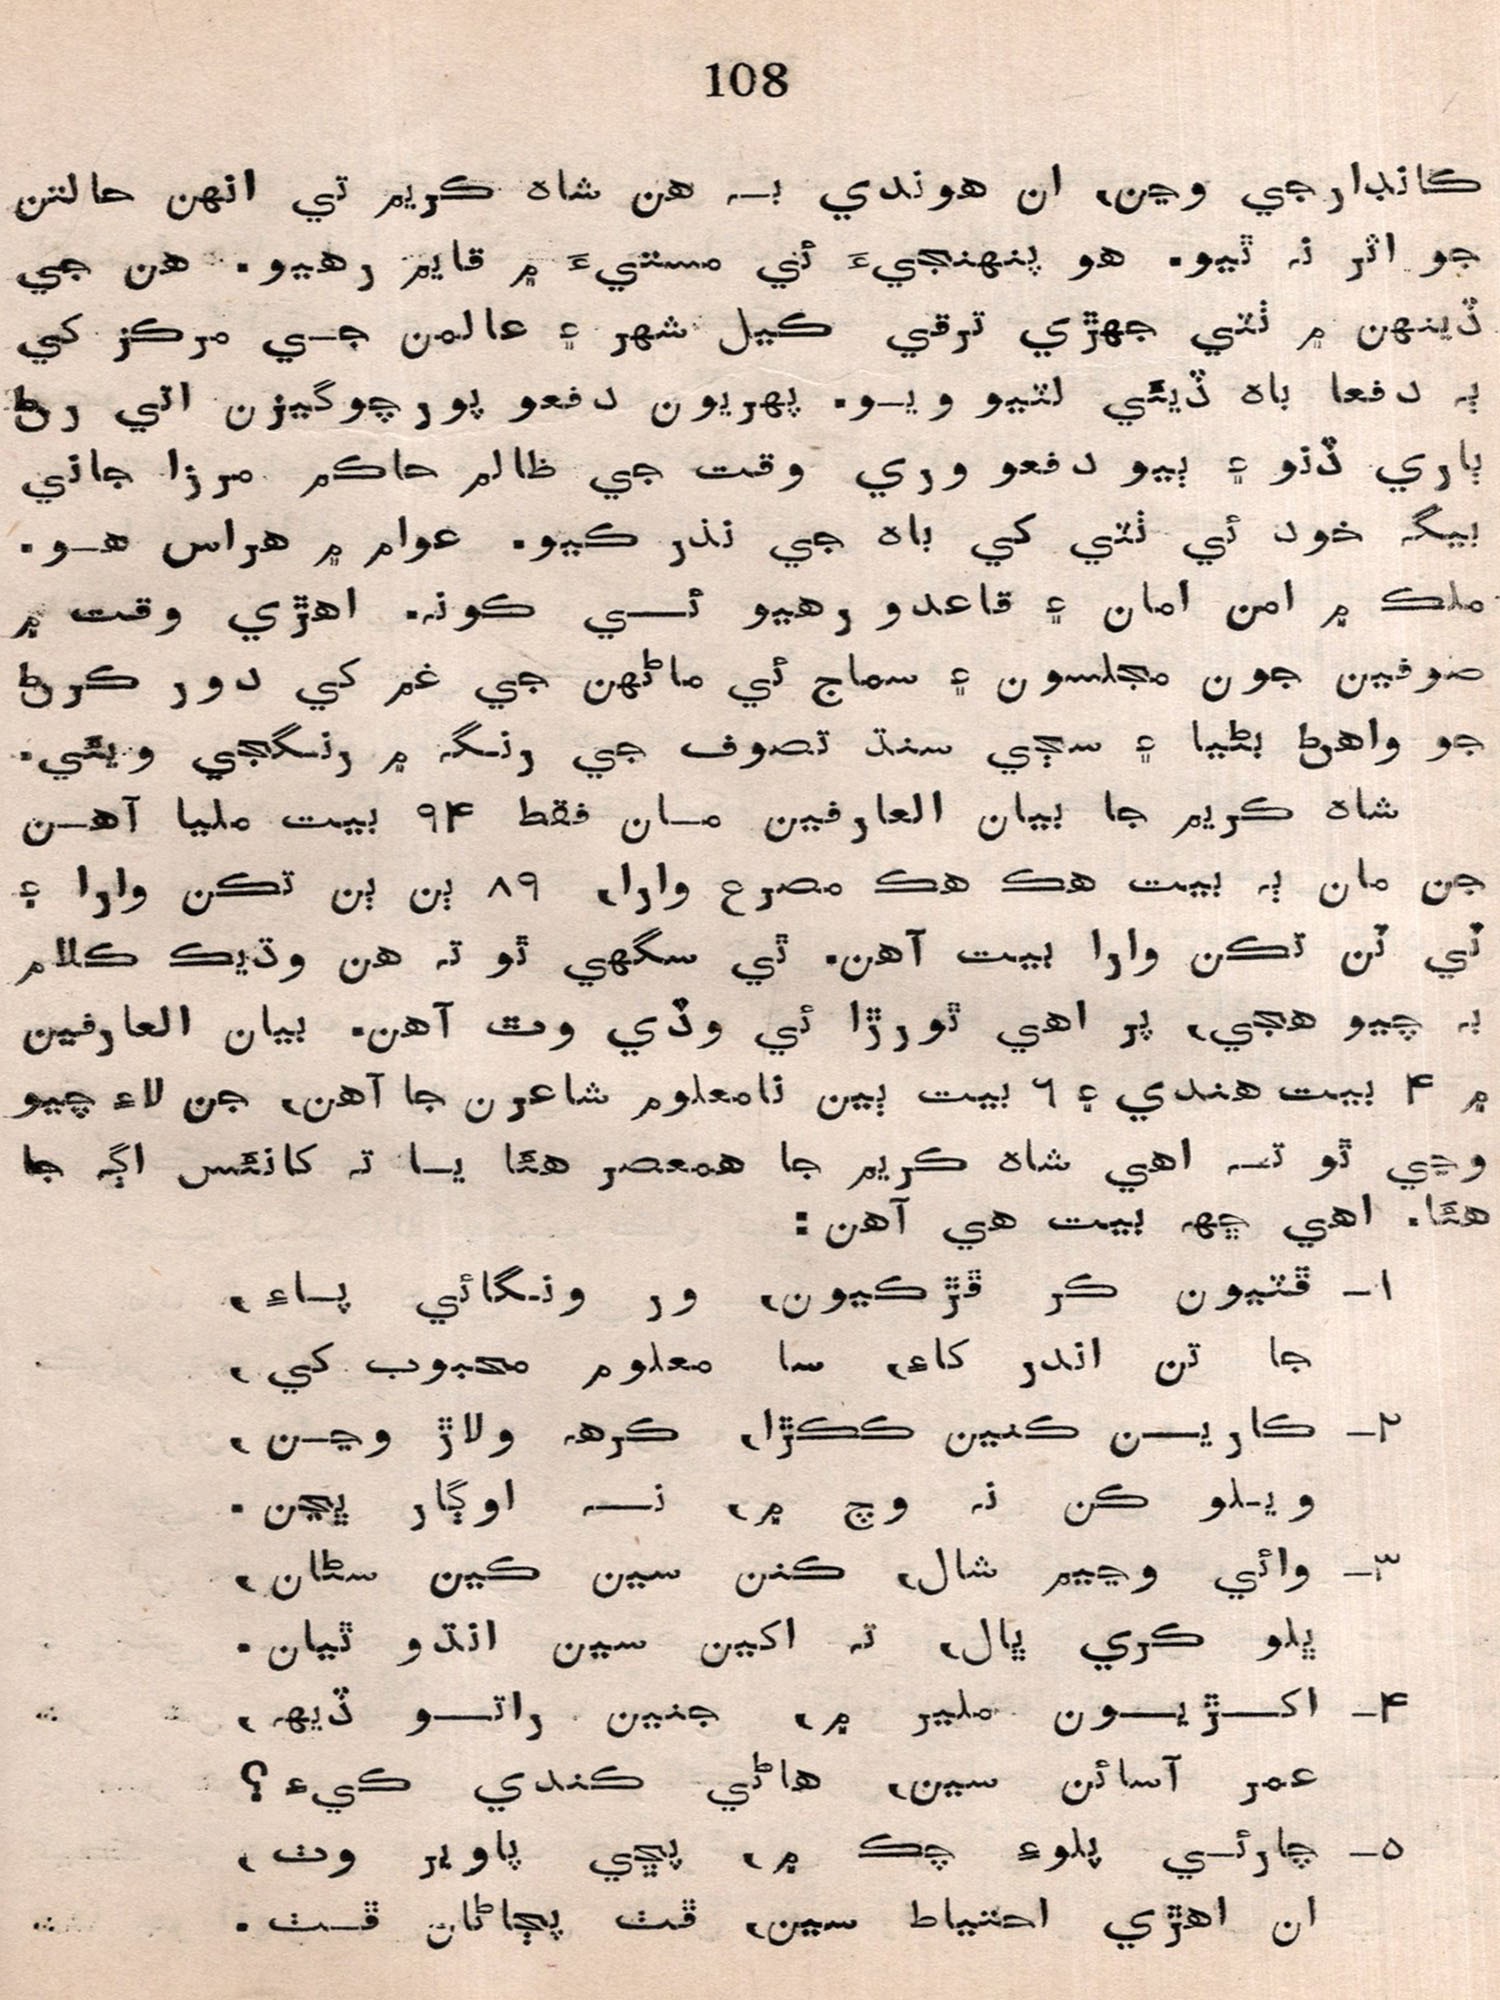 108
ڪانڊارجي وڃن، ان هوندي بہ هن شاهہ ڪريم تي انهن حالتن
جو اثر نہ ٿيو. هو پنهنجيءَ ئي مستيءَ ۾ قايم رهيو. هن جي
ڏينهن ۾ ٺٽي جهڙي ترقي ڪيل شهر ۽ عالمن جي مرڪز کي
ٻہ دفعا باهہ ڏيئي لٽيو ويو. پهريون دفعو پورچوگيزن اتي رڻ
ٻاري ڏنو ۽ ٻيو دفعو وري وقت جي ظالم حاڪم مرزا جاني
بيگہ خود ئي ٺٽي کي باهہ جي نذر ڪيو. عوام ۾ هراس هو.
ملڪ ۾ امن امان ۽ قاعدو رهيو ئي ڪونہ. اهڙي وقت ۾
صوفين جون مجلسون ۽ سماج ئي ماڻهن جي غم کي دور ڪرڻ
جو واهڻ بڻيا ۽ سڄي سنڌ تصوف جي رنگہ ۾ رنگجي ويئي.
شاهہ ڪريم جا بيان العارفين مان فقط ۹۴ بيت مليا آهن
جن مان ٻہ بيت هڪ هڪ مصرع وارا، ۸۹ ٻن ٻن تڪن وارا ۽
ٽي ٽن تڪن وارا بيت آهن. ٿي سگهي ٿو تہ هن وڌيڪ ڪلام
بہ چيو هجي، پر اهي ٿورڙا ئي وڏي وٿ آهن. بيان العارفين
۾ ۴ بيت هندي ۽ ٦ بيت ٻين نامعلوم شاعرن جا آهن، جن لاءِ چيو
وڃي ٿو تہ اهي شاهہ ڪريم جا همعصر هئا يا تہ کانئس اڳہ جا
هئا. اهي ڇهہ بيت هي آهن:
۱– ڦٽيون ڪر ڦڙڪيون، ور ونگائي پاءِ،
جا تن اندر کاءِ، سا معلوم محبوب کي،
۲– ڪارين ڪنين ڪڪڙا، ڪرهہ ولاڙ وڃن،
ويلو ڪن نہ وچ ۾، نہ اوڳار ڀڃن.
۳– وائي وڃيم شال، ڪنن سين ڪين سڻان،
ڀلو ڪري ڀال، تہ اکين سين انڌو ٿيان.
۴– اکڙيون ملير ۾، جنين راتو ڏيهہ،
عمر آسائن سين، هاڻي ڪندي ڪيءِ؟
٥– چارئي پلوءَ چڪ ۾، پڇي پاوير وٽ،
ان اهڙي احتياط سين، ڦٽ پڄاڻان ڦٽ.